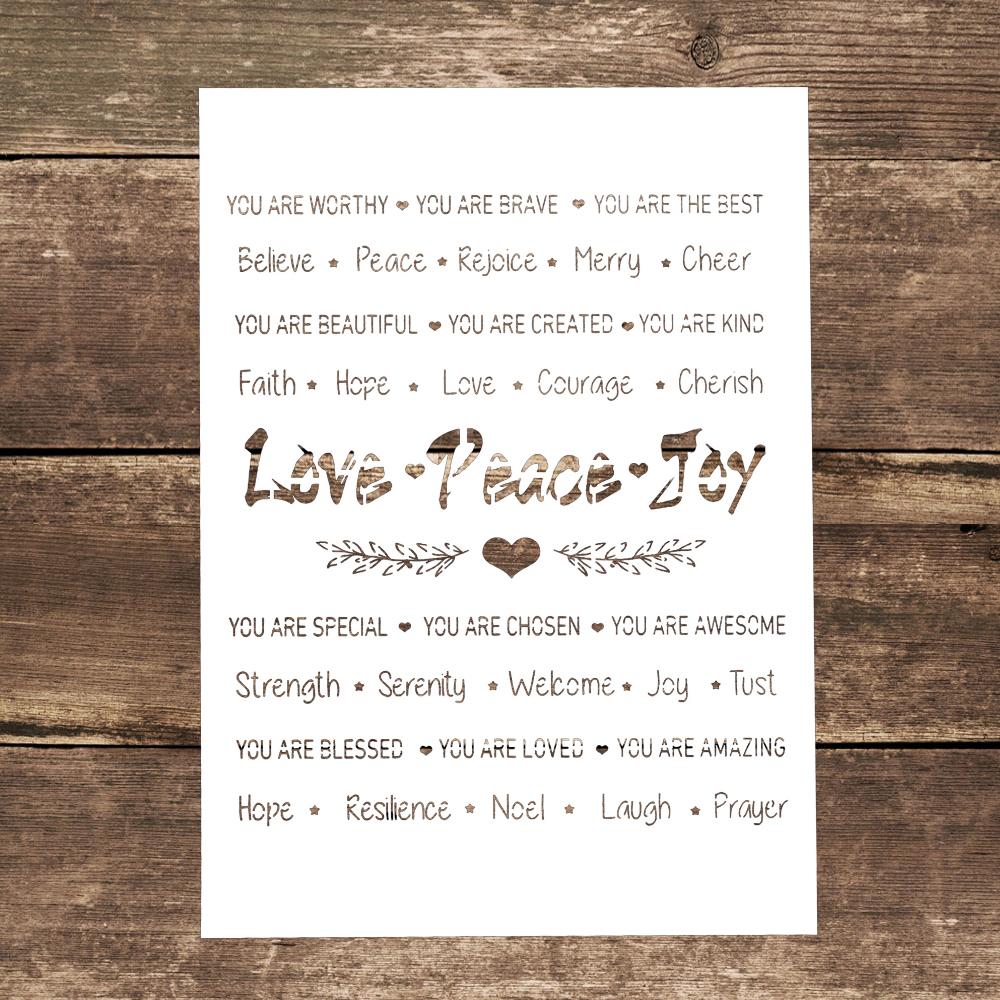 YOU ARE WORTHY ♥ YOU ARE BRAVE ♥ YOU ARE THE BEST
Believe ★ Peace ★ Rejoice ★ Merry ★ Cheer
YOU ARE BEAUTIFUL ♥ YOU ARE CREATED ♥ YOU ARE KIND
Faith ★ Hope ★ Love ★ Courage ★ Cherish
Love ♥ Peace ♥ Joy
YOU ARE SPECIAL ♥ YOU ARE CHOSEN ♥ YOU ARE AWESOME
Strength ★ Serenity ★ Welcome ★ Joy ★ Tust
YOU ARE BLESSED ♥ YOU ARE LOVED ♥ YOU ARE AMAZING
Hope ★ Resilience ★ Noel ★ Laugh ★ Prayer